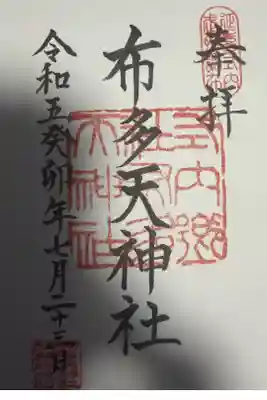 奉拝
布多天神社
令和五癸卯年七月二十三日
式内郷
天神社